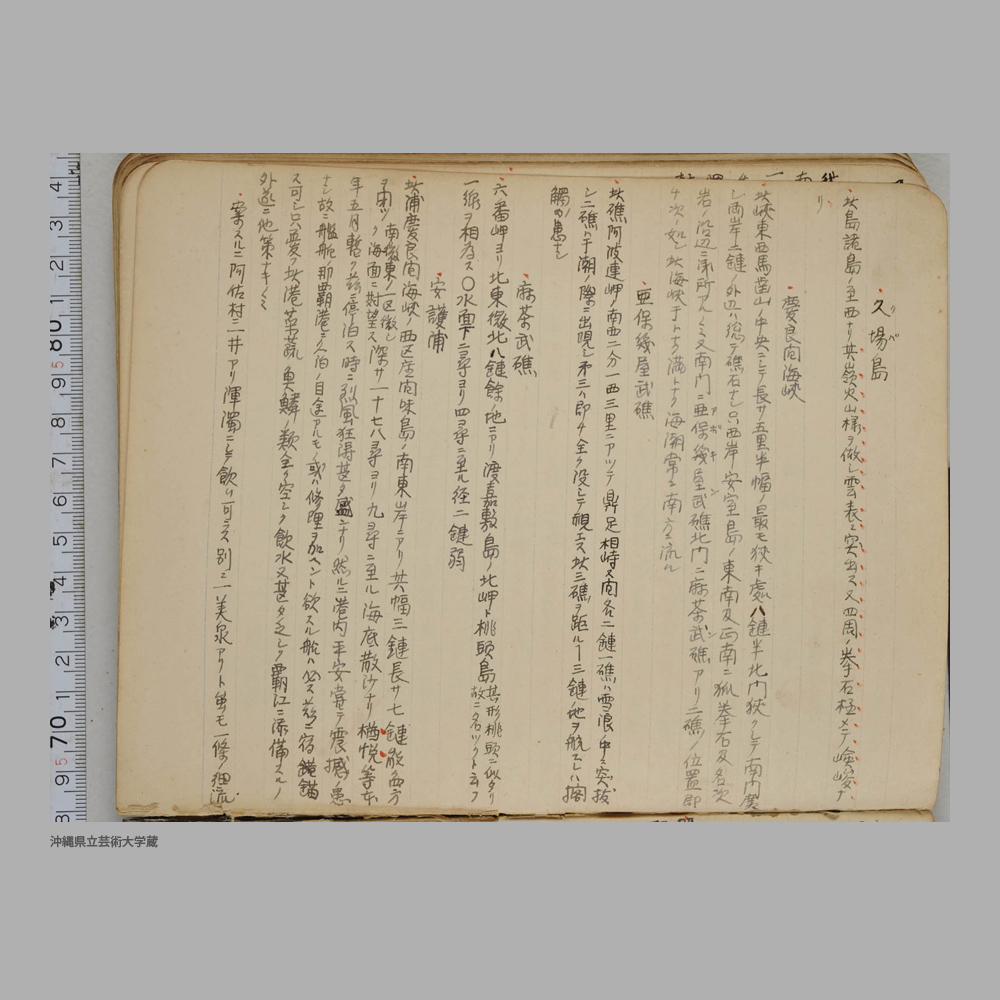 久場島
クバ
此島諸島ノ至西ナリ其嶺火山様ヲ做シ雲表ニ突出ス又四周ノ拳石極メテ嶮峻ナ
リ
慶良間海峡
此峡東西馬歯山ノ中央ニシテ長サ五里半幅ノ最モ狭キ処八鏈半北門狭クシテ南門広
シ両岸二鏈ノ外辺ハ総テ礁石ナシ只西岸安室島ノ東南及正南ニ孤拳石及名次
岩ノ沿辺ニ アルノミ又南門ニ亜保幾屋武礁北門ニ麻茶武礁アリ二礁ノ位置即
チ次ノ如シ此海峡干トナク満トナク海潮常ニ南方ニ流ル
亜保幾屋武礁
此礁阿波連岬ノ南西二分一西三里ニアツテ鼎足相峙又間各二鏈一礁ハ雪浪ノ中ニ突抜
シ二礁ハ干潮ノ際ニ出現シ第三ハ即チ全ク没シテ視エス此三礁ヲ距ルー三鏈ノ地ヲ航スレハ擱
觸ノ患ナシ
麻茶武礁
六番岬ヨリ北東微北八鏈餘ノ地ニアリ渡嘉敷島ノ北岬ト桃頭島其形桃頭ニ似タリ故ニ名ツクト云フ
一線ヲ相為ス〇水面下二尋ヨリ四尋ニ至ル径二鏈弱
安護浦
此浦慶良間海峡ノ西区座間味島ノ南東岸ニアリ其幅三鏈長サ七鏈 西方
ヲ ツク海面ニ対望ス深サ一十七八尋ヨリ九尋ニ至ル海底散沙ナリ楢悦等本
年五月暫ク茲ニ停泊ス時ニ烈風狂濤甚タ盛ナリ然ルニ港内平安嘗テ震撼ノ患
ナシ故ニ艦船那覇港ニ ノ目途アルモノ或ハ修理ヲ加ヘント欲スル船ハ必ス茲ニ宿錨
ス可シ只憂フ此港菜蔬魚鱗ノ類全ク空シク飲水又甚タ乏シク覇江ニ添備スルノ
外 ニ他策ナキノミ
案スルニ阿佐村ニ井アリ渾濁ニシテ飲ム可ラス別ニ一美泉アリト雖モ一條ノ細流
14 2 1 80 9 8 7 6 5 4 3 2 1 70 9 8
沖縄県立芸術大学蔵